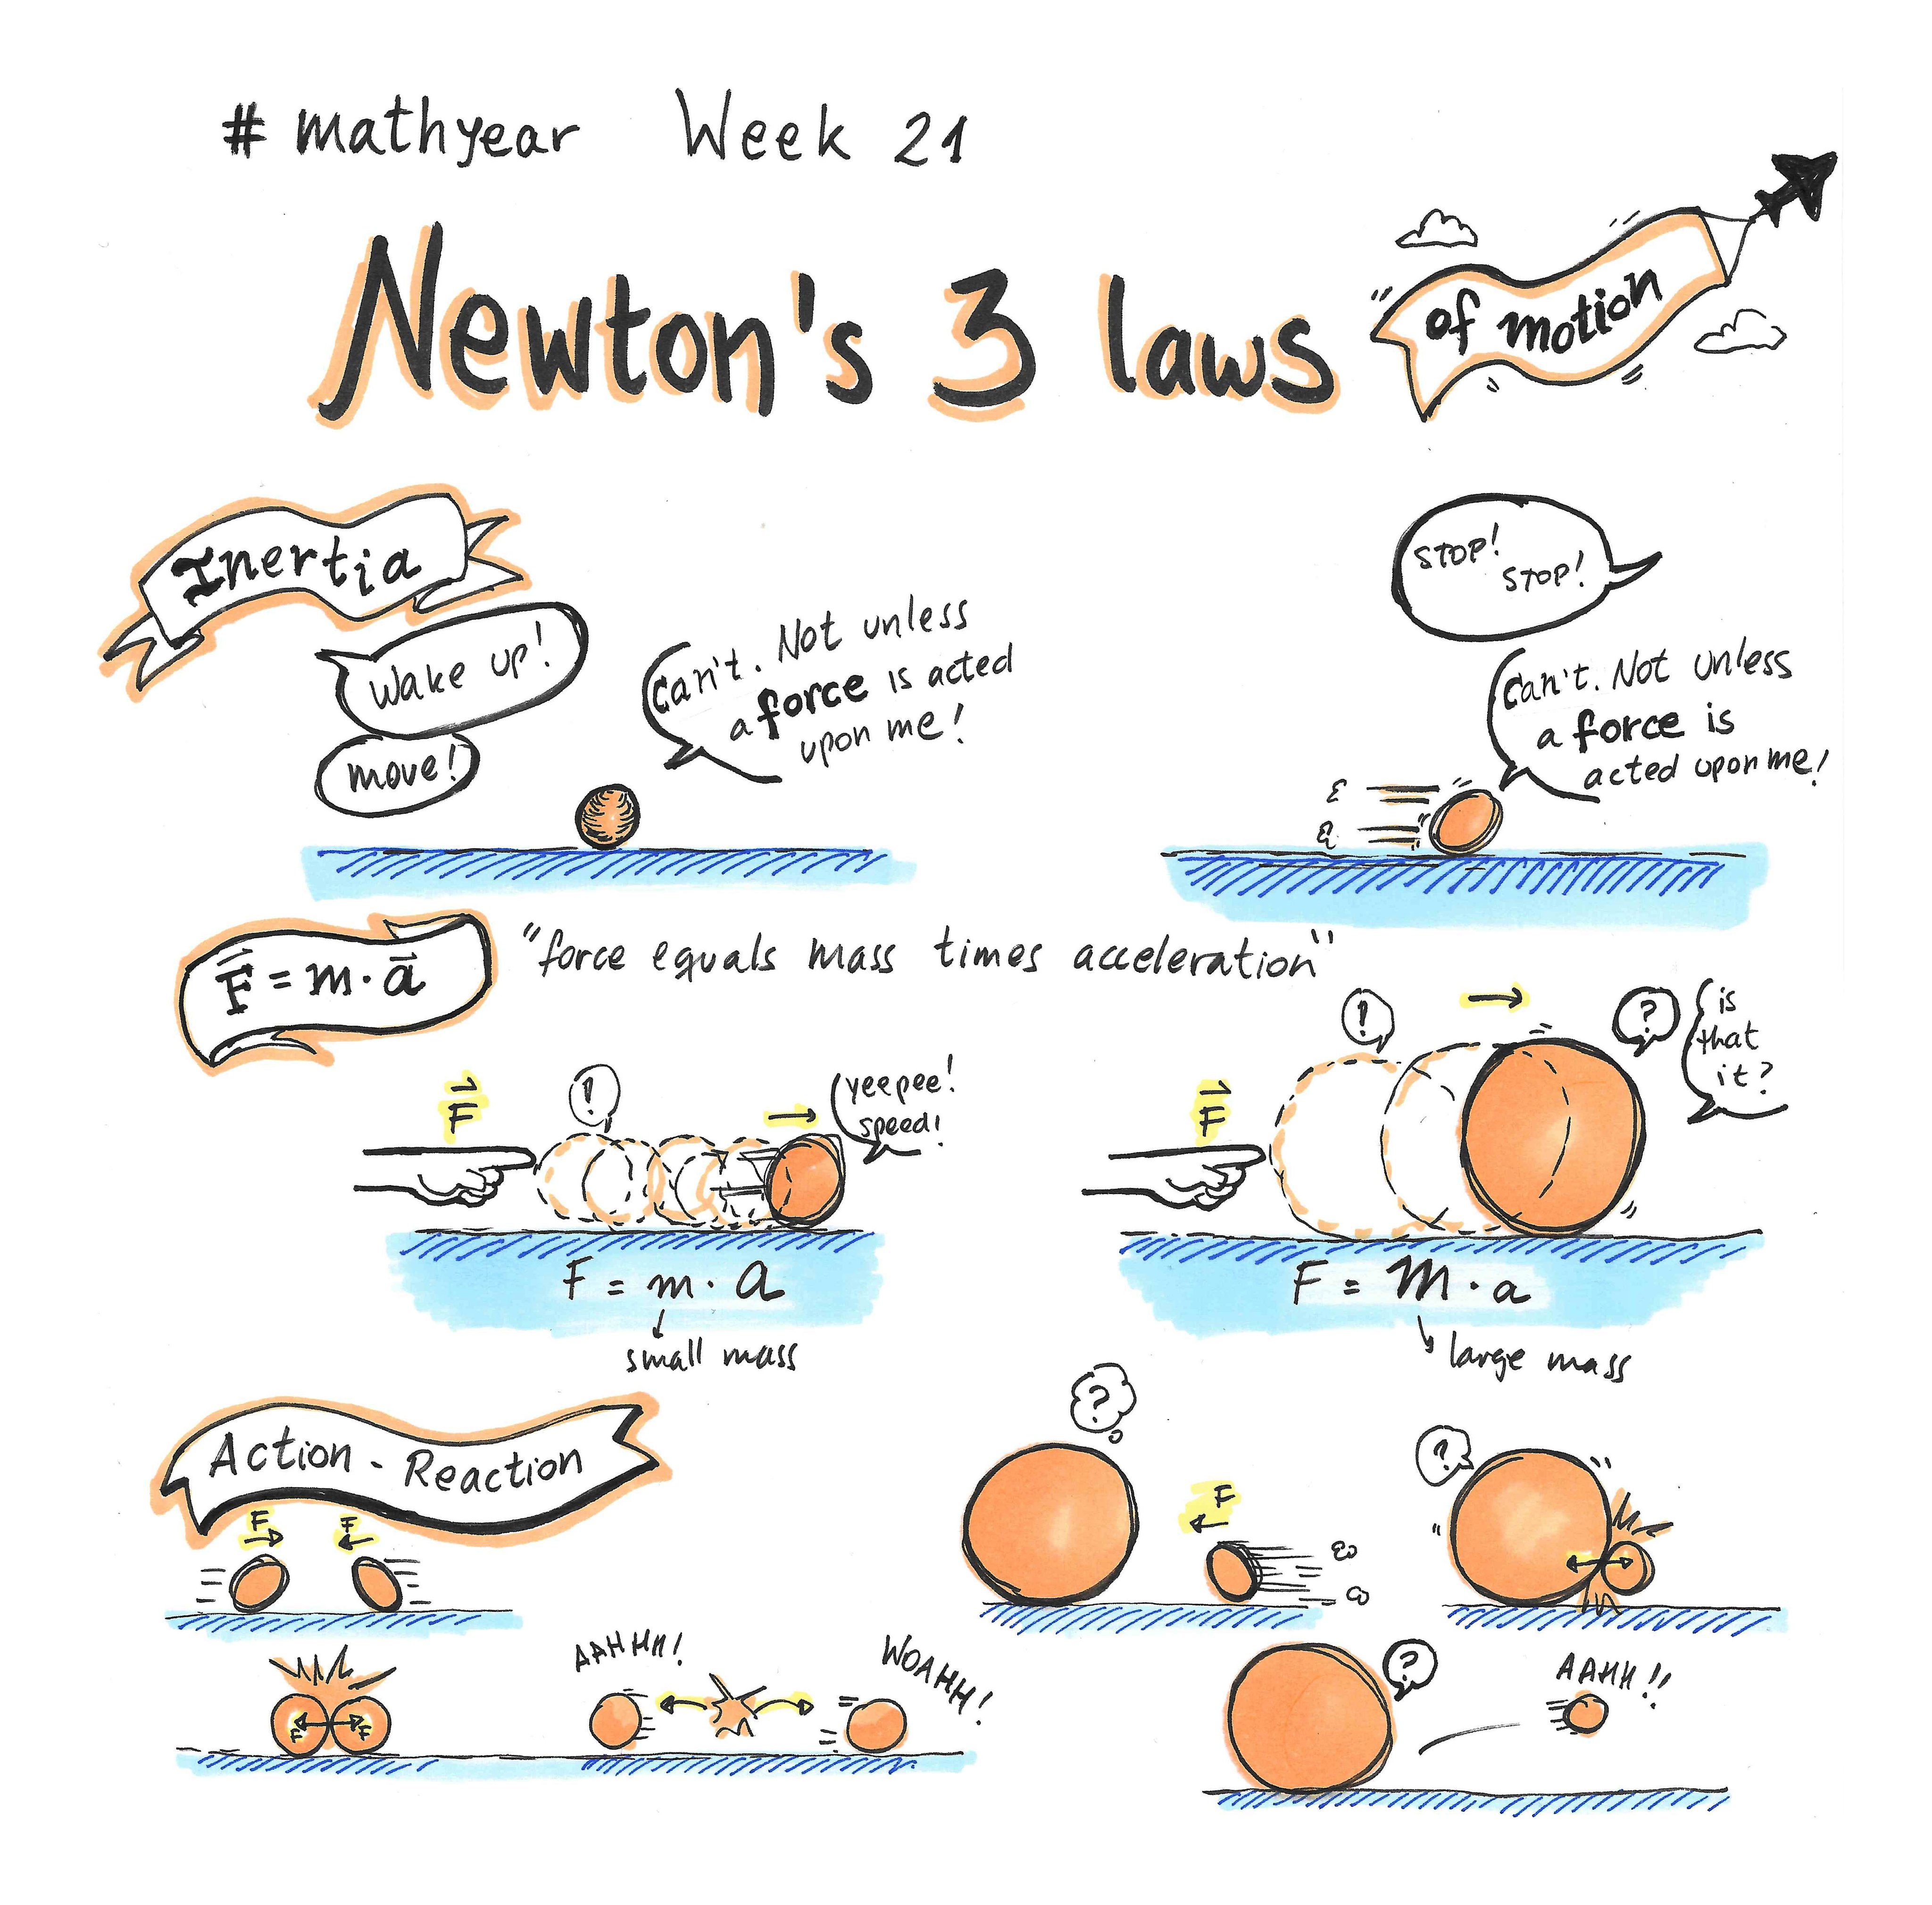 # mathyear Week 21
Newton's 3 laws
of motion
Inertia
Wake up!
move!
Can't. Not unless
a force is acted
upon me!
STOP!
STOP!
Can't. Not unless
a force is
acted upon me!
F = m · a
"force equals mass times acceleration"
F
!
yeepee!
speed!
F = m · a
small mass
F
!
?
is
that
it?
F = m · a
large mass
Action - Reaction
F
F
F
F
AAHHH!
WOAHH!
?
F
?
?
AAHH!!